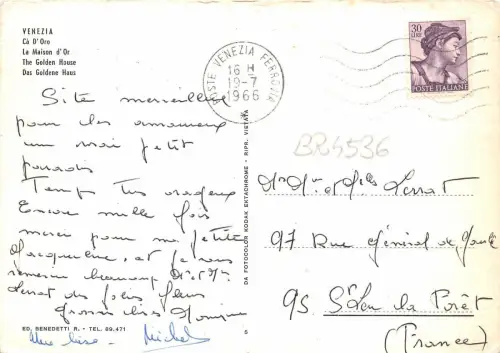 VENEZIA
Cà D'Oro
La Maison d'Or
The Golden House
Das Goldene Haus
POSTE VENEZIA FERROVIA
16 H
19-7
1966
30
LIRE
POSTE ITALIANE
BR4536
Site merveilleux
pour les amoureux
un vrai petit
paradis
Temps très orageux
Encore mille fois
merci pour ma petite
Jacqueline, et je vous
remercie beaucoup Mr et Mme
Serrat des jolies fleurs
Grosses bises Monique
Michel
Mr Mme et fils Serrat
97 Rue Général de Gaulle
95 St Leu la Forêt
(France)
DA FOTOCOLOR KODAK EKTACHROME - RIPR. VIETATA
ED. BENEDETTI R. - TEL. 89.471
5